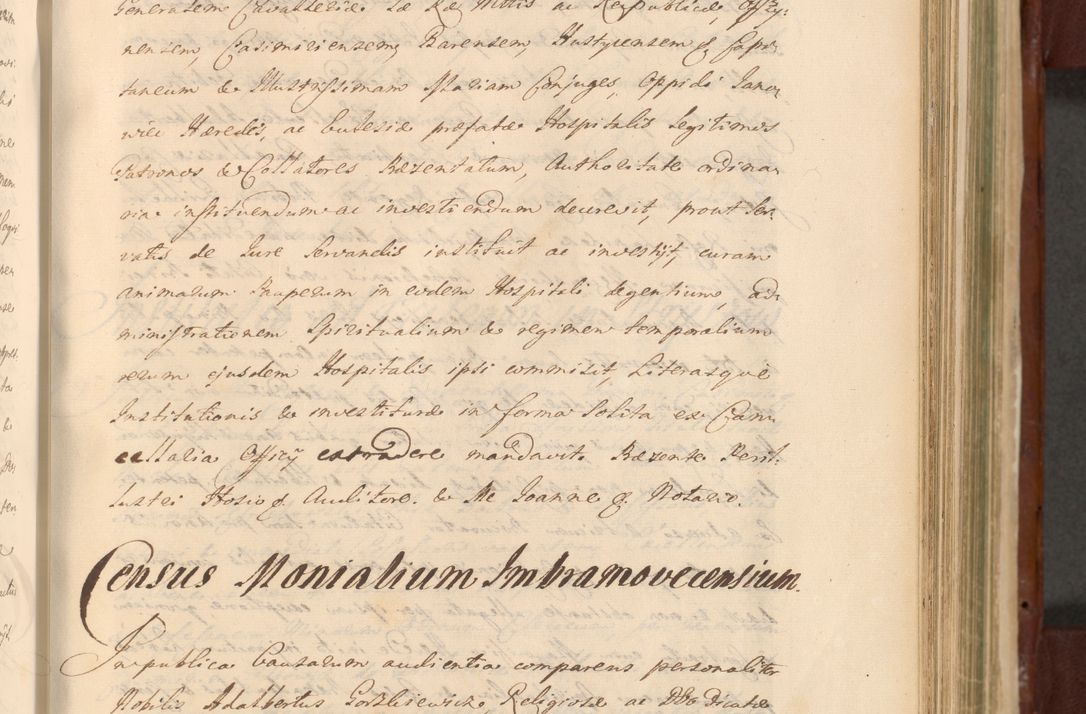 Generalem Cavalleriæ Sæ Ræ Mttis ac Reipublicæ, Osty-
nensem, Casimiriensem, Barensem, Hustycensem & Capi-
taneum & Illustrissimam Mariam Conjuges, Oppidi Jano-
wiec Hæredes, ac Ecclesiæ præfatæ Hospitalis legitimos
Patronos & Collatores Præsentatum, Authoritate ordina-
ria instituendum ac investiendum decrevit, prout Ser-
vatis de Jure Servandis instituit ac investijt, curam
animarum Pauperum in eodem Hospitali degentium, ad-
ministrationem Spiritualium & regimen temporalium
rerum ejusdem Hospitalis ipsi commisit, Literasque
Institutionis & investituræ in forma Solita ex Can-
cellaria Officij extradere mandavit. Præsente Peril-
lustri Hosio Auditore & Me Joanne Notario.
Census Monialium Imbramovecensium.
In publica Causarum audientia comparens personaliter
Nobilis Adalbertus Religiosæ ac Deo Dicatæ